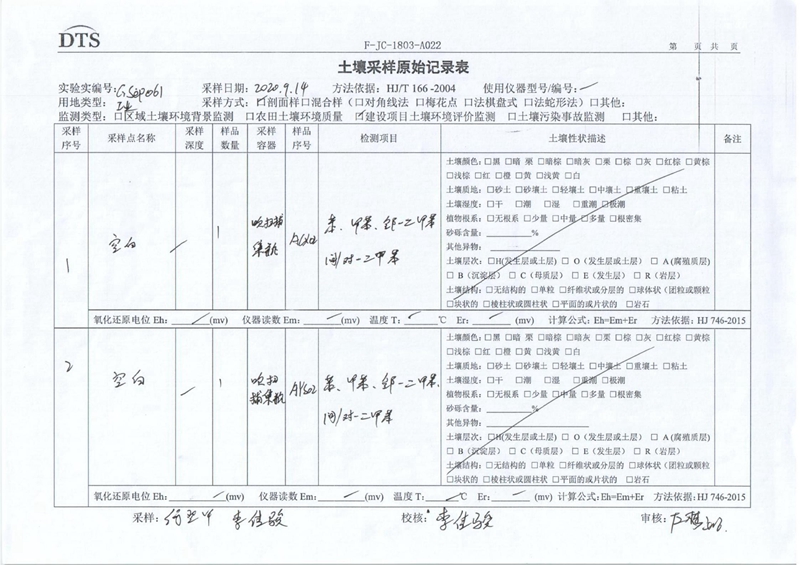 DTS
F-JC-1803-A022
第 页 共 页
土壤采样原始记录表
实验实编号: 采样日期: 2020.9.14 方法依据: HJ/T 166 -2004 使用仪器型号/编号:
用地类型: 采样方式: □剖面样□混合样（□对角线法 □梅花点 □法棋盘式 □法蛇形法）□其他:
监测类型: □区域土壤环境背景监测 □农田土壤环境质量 □建设项目土壤环境评价监测 □土壤污染事故监测 □其他:
采样序号 采样点名称 采样深度 样品数量 采样容器 样品序号 检测项目 土壤性状描述 备注
1 空白 1 吹扫捕集瓶 苯、甲苯、邻-二甲苯
间/对-二甲苯
土壤颜色: □黑 □暗 栗 □暗棕 □暗灰 □栗 □棕 □灰 □红棕 □黄棕
□浅棕 □红 □橙 □黄 □浅黄 □白
土壤质地: □砂土 □砂壤土 □轻壤土 □中壤土 □重壤土 □粘土
土壤湿度: □干 □潮 □湿 □重潮 □极潮
植物根系: □无根系 □少量 □中量 □多量 □根密集
砂砾含量: %
其他异物:
土壤层次: □H(发生层或土层) □ O（发生层或土层） □ A (腐殖质层)
□ B（沉淀层） □ C（母质层） □ E（发生层） □ R（岩层）
土壤结构: □无结构的 □单粒 □纤维状或分层的 □球体状（团粒或颗粒
□块状的 □棱柱状或圆柱状 □平面的或片状的 □岩石
氧化还原电位 Eh: (mv) 仪器读数 Em: (mv) 温度 T: ℃ Er: (mv) 计算公式: Eh=Em+Er 方法依据: HJ 746-2015
2 空白 1 吹扫捕集瓶 苯、甲苯、邻-二甲苯、
间/对-二甲苯
土壤颜色: □黑 □暗 栗 □暗棕 □暗灰 □栗 □棕 □灰 □红棕 □黄棕
□浅棕 □红 □橙 □黄 □浅黄 □白
土壤质地: □砂土 □砂壤土 □轻壤土 □中壤土 □重壤土 □粘土
土壤湿度: □干 □潮 □湿 □重潮 □极潮
植物根系: □无根系 □少量 □中量 □多量 □根密集
砂砾含量: %
其他异物:
土壤层次: □H(发生层或土层) □ O（发生层或土层） □ A (腐殖质层)
□ B（沉淀层） □ C（母质层） □ E（发生层） □ R（岩层）
土壤结构: □无结构的 □单粒 □纤维状或分层的 □球体状（团粒或颗粒
□块状的 □棱柱状或圆柱状 □平面的或片状的 □岩石
氧化还原电位 Eh: (mv) 仪器读数 Em: (mv) 温度 T: ℃ Er: (mv) 计算公式: Eh=Em+Er 方法依据: HJ 746-2015
采样: 李佳骏 校核: 李佳骏 审核: